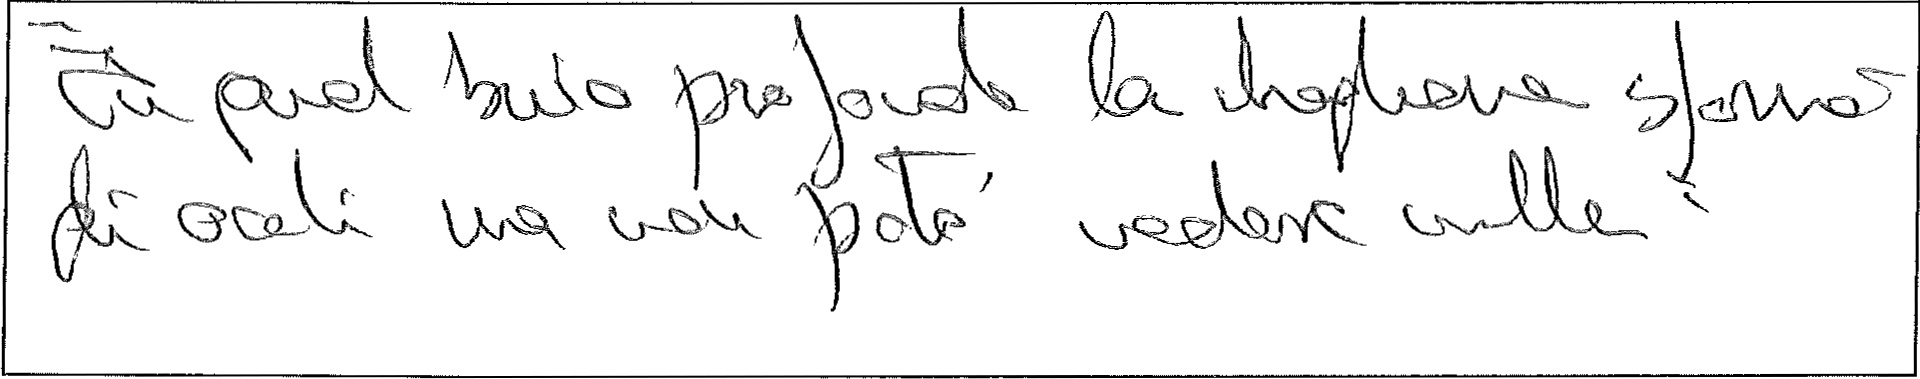 "In quel buio profondo la dragona sforzò
gli occhi ma non potò vedere nulla"